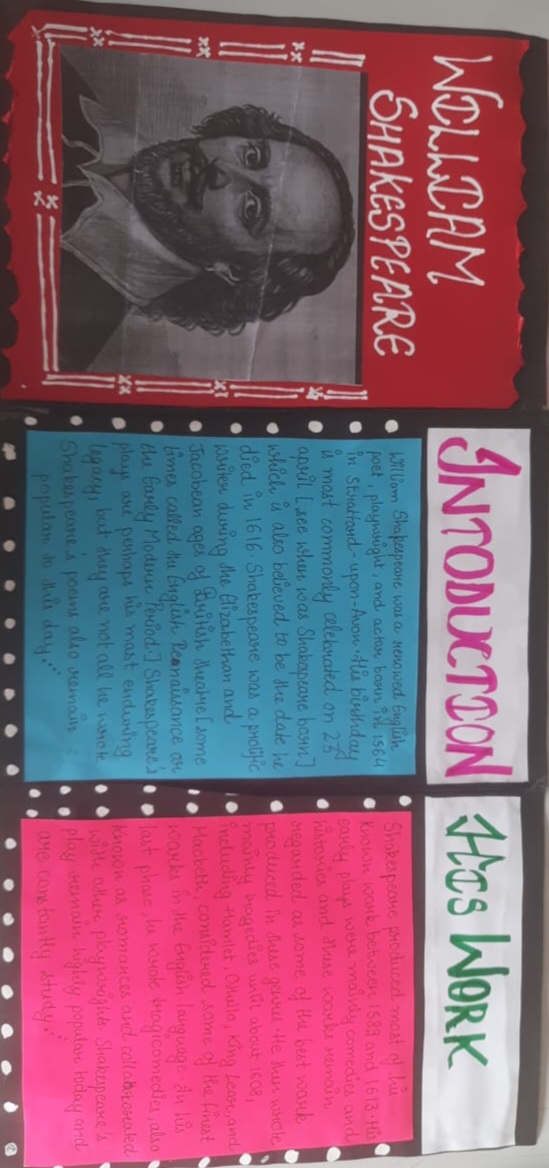 WILLIAM
SHAKESPEARE
INTODUCTION
William Shakespeare was a renowed English
poet, playwright, and actor born in 1564
in Stratford-upon-Avon. His birthday
is most commonly celebrated on 23
april [see when was Shakespare born]
which is also believed to be the date he
died in 1616. Shakespeare was a prolific
writer during the Elizabethan and
Jacobean ages of British theatre [some
times called the English Renaissance or
the Early Modern Period.] Shakespeare's
plays are perhaps his most enduring
legacy, but they are not all he wrote
Shakespeare's poems also remain
popular to this day...''
HIS WORK
Shakespeare produced most of his
known work between 1589 and 1613. His
early plays were mainly comedies and
histories and these works remain
regarded as some of the best work
produced in these genres. He then wrote
mainly tragedies until about 1608,
including Hamlet, Othello, King Lear, and
Macbeth, considered some of the finest
works in the English language. In his
last phase, he wrote tragicomedies, also
known as romances and collaborated
with other playwrights. Shakespeare's
play remain highly popular today and
are constantly study.''